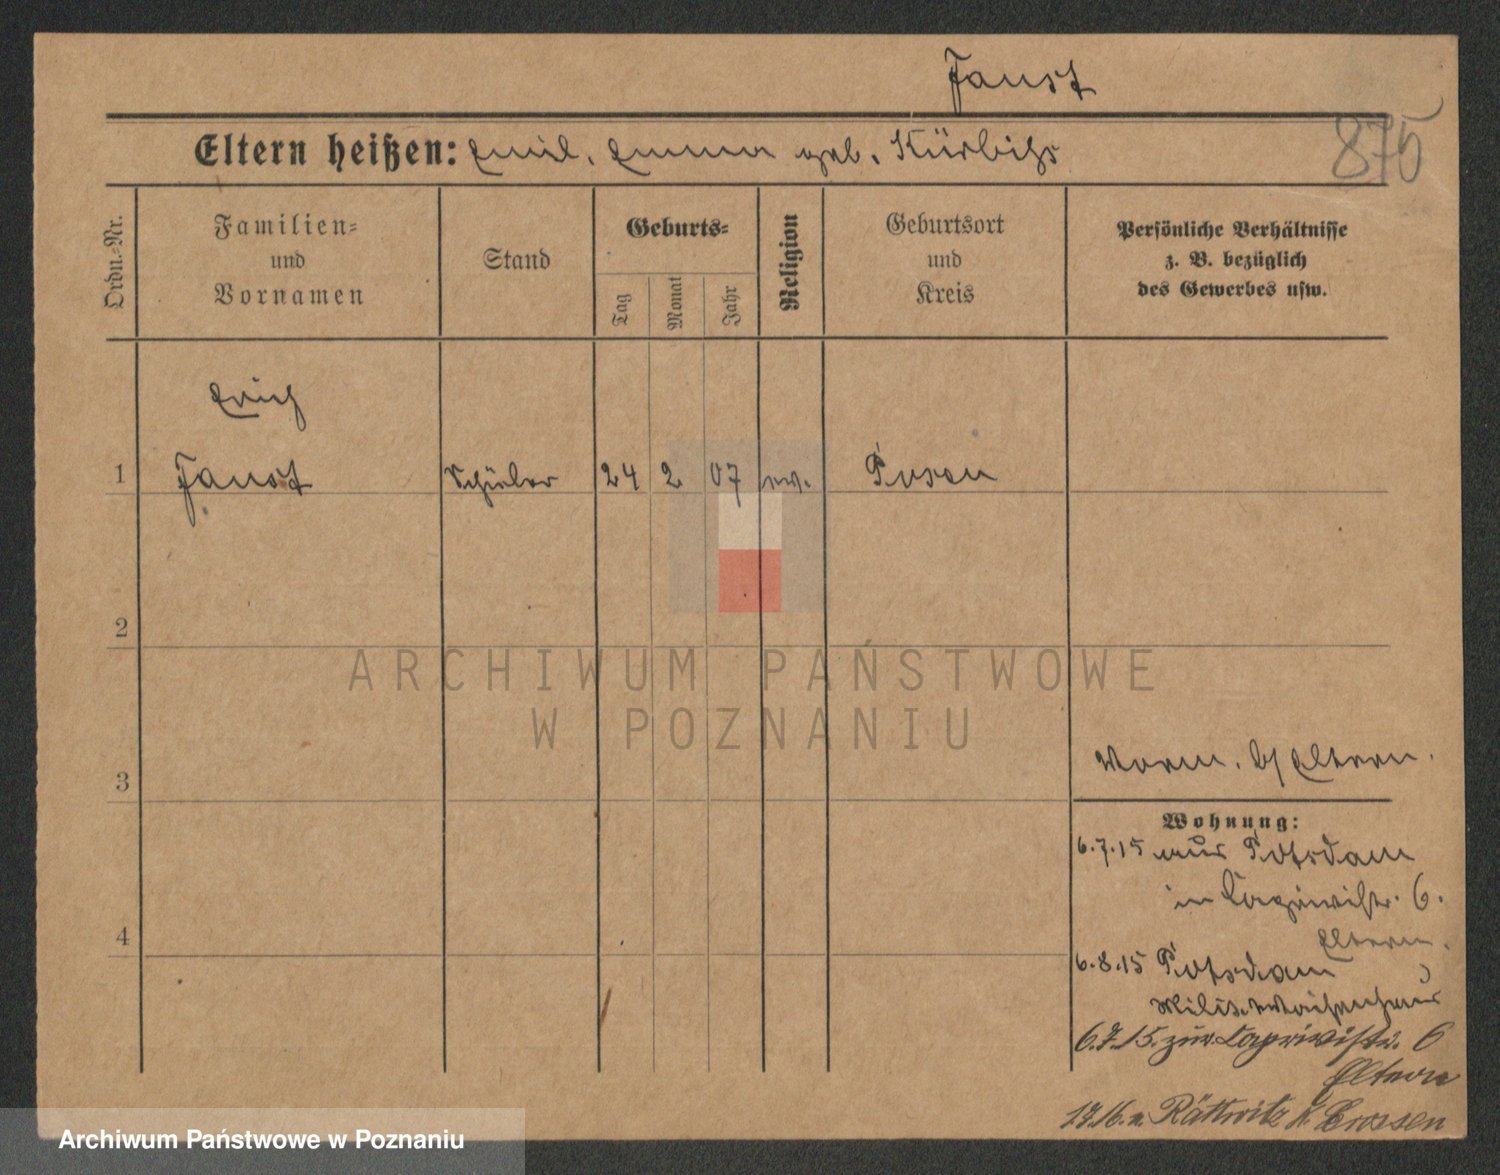 Faust
875
Eltern heißen: Emil. Emma geb. Kürbihs
Ordn.-Nr.
Familien-
und
Vornamen
Stand
Geburts-
Tag
Monat
Jahr
Religion
Geburtsort
und
Kreis
Persönliche Verhältnisse
z. B. bezüglich
des Gewerbes usw.
Erich
1 Faust Schüler 24 2 07 ev. Posen
2
3
4
Vorm. b/ Eltern.
Wohnung:
6.7.15 aus Potsdam
in Caprivistr. 6.
Eltern.
6.8.15 Potsdam
Milit. Waisenhaus
6.7.15. zur Caprivistr. 6
Eltern
17.16. n. Rättwitz K. Crossen
ARCHIWUM PAŃSTWOWE
W POZNANIU
Archiwum Państwowe w Poznaniu